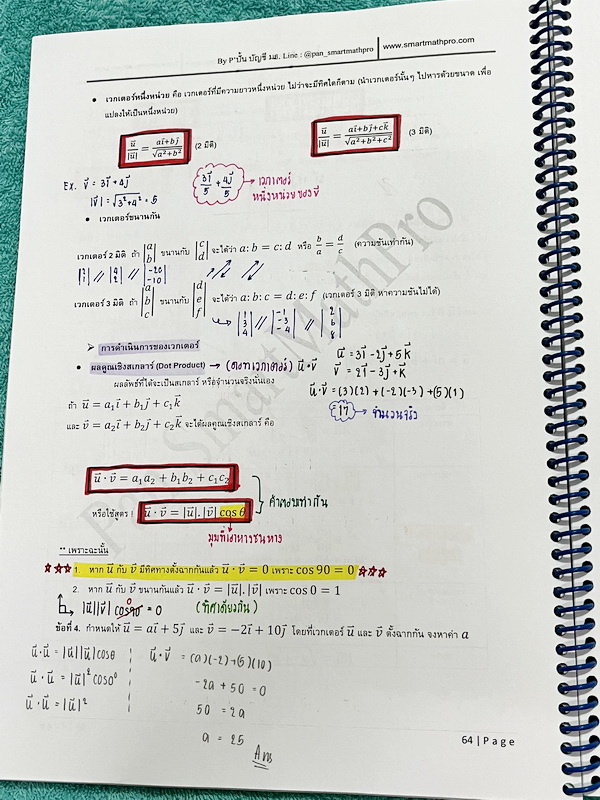 By P'ปั้น บัญชี มธ. Line : @pan_smartmathpro | www.smartmathpro.com
• เวกเตอร์หนึ่งหน่วย คือ เวกเตอร์ที่มีความยาวหนึ่งหน่วย ไม่ว่าจะมีทิศใดก็ตาม (นำเวกเตอร์นั้นๆ ไปหารด้วยขนาด เพื่อ
แปลงให้เป็นหนึ่งหน่วย)
u⃗/|u⃗| = (ai⃗+bj⃗)/√(a²+b²) (2 มิติ)
u⃗/|u⃗| = (ai⃗+bj⃗+ck⃗)/√(a²+b²+c²) (3 มิติ)
Ex. v⃗ = 3i⃗ + 4j⃗
|v⃗| = √(3²+4²) = 5
3i⃗/5 + 4j⃗/5 → เวกเตอร์
หนึ่งหน่วย ของ v⃗
• เวกเตอร์ขนานกัน
เวกเตอร์ 2 มิติ ถ้า |a b| ขนานกับ |c d| จะได้ว่า a: b = c: d หรือ b/a = d/c (ความชันเท่ากัน)
เวกเตอร์ 3 มิติ ถ้า |a b c| ขนานกับ |d e f| จะได้ว่า a: b: c = d: e: f (เวกเตอร์ 3 มิติ หาความชันไม่ได้)
|1 3 4| // |-1 -3 -4| // |2 6 8|
➢ การดำเนินการของเวกเตอร์
• ผลคูณเชิงสเกลาร์ (Dot Product) → (ดอทเวกเตอร์) u⃗·v⃗
ผลลัพธ์ที่ได้จะเป็นสเกลาร์ หรือจำนวนจริงนั่นเอง
u⃗ = 3i⃗ - 2j⃗ + 5k⃗
v⃗ = 2i⃗ - 3j⃗ + k⃗
u⃗·v⃗ = (3)(2) + (-2)(-3) + (5)(1)
= 17 → จำนวนจริง
ถ้า u⃗ = a₁i⃗ + b₁j⃗ + c₁k⃗
และ v⃗ = a₂i⃗ + b₂j⃗ + c₂k⃗ จะได้ผลคูณเชิงสเกลาร์ คือ
u⃗ · v⃗ = a₁a₂ + b₁b₂ + c₁c₂
คำตอบเท่ากัน
หรือใช้สูตร u⃗ · v⃗ = |u⃗|. |v⃗| cos θ
มุมที่เอาหางชนหาง
** เพราะฉะนั้น
☆☆☆ 1. หาก u⃗ กับ v⃗ มีทิศทางตั้งฉากกันแล้ว u⃗ · v⃗ = 0 เพราะ cos 90 = 0 ☆☆☆
2. หาก u⃗ กับ v⃗ ขนานกันแล้ว u⃗ · v⃗ = |u⃗|. |v⃗| เพราะ cos 0 = 1
|u⃗||v⃗| cos90 = 0 (ทิศเดียวกัน)
ข้อที่ 4. กำหนดให้ u⃗ = ai⃗ + 5j⃗ และ v⃗ = −2i⃗ + 10j⃗ โดยที่เวกเตอร์ u⃗ และ v⃗ ตั้งฉากกัน จงหาค่า a
u⃗·u⃗ = |u⃗||u⃗|cosθ
u⃗·u⃗ = |u⃗|² cos0°
u⃗·u⃗ = |u⃗|²
u⃗·v⃗ = (a)(-2)+(5)(10)
-2a + 50 = 0
50 = 2a
a = 25
Ans
64 | Page
Pan SmartMathPro